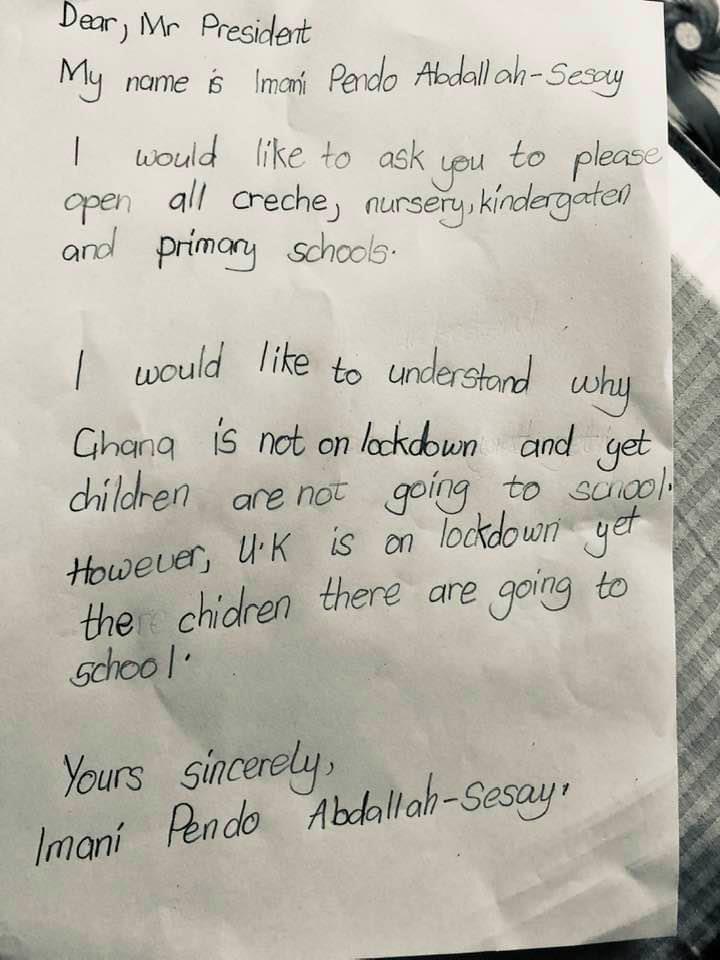 Dear, Mr President
My name is Imani Pendo Abdallah-Sesay
I would like to ask you to please
open all creche, nursery, kindergaten
and primary schools.
I would like to understand why
Ghana is not on lockdown and yet
children are not going to school.
However, U.K is on lockdown yet
the chidren there are going to
school.
Yours sincerely,
Imani Pendo Abdallah-Sesay.